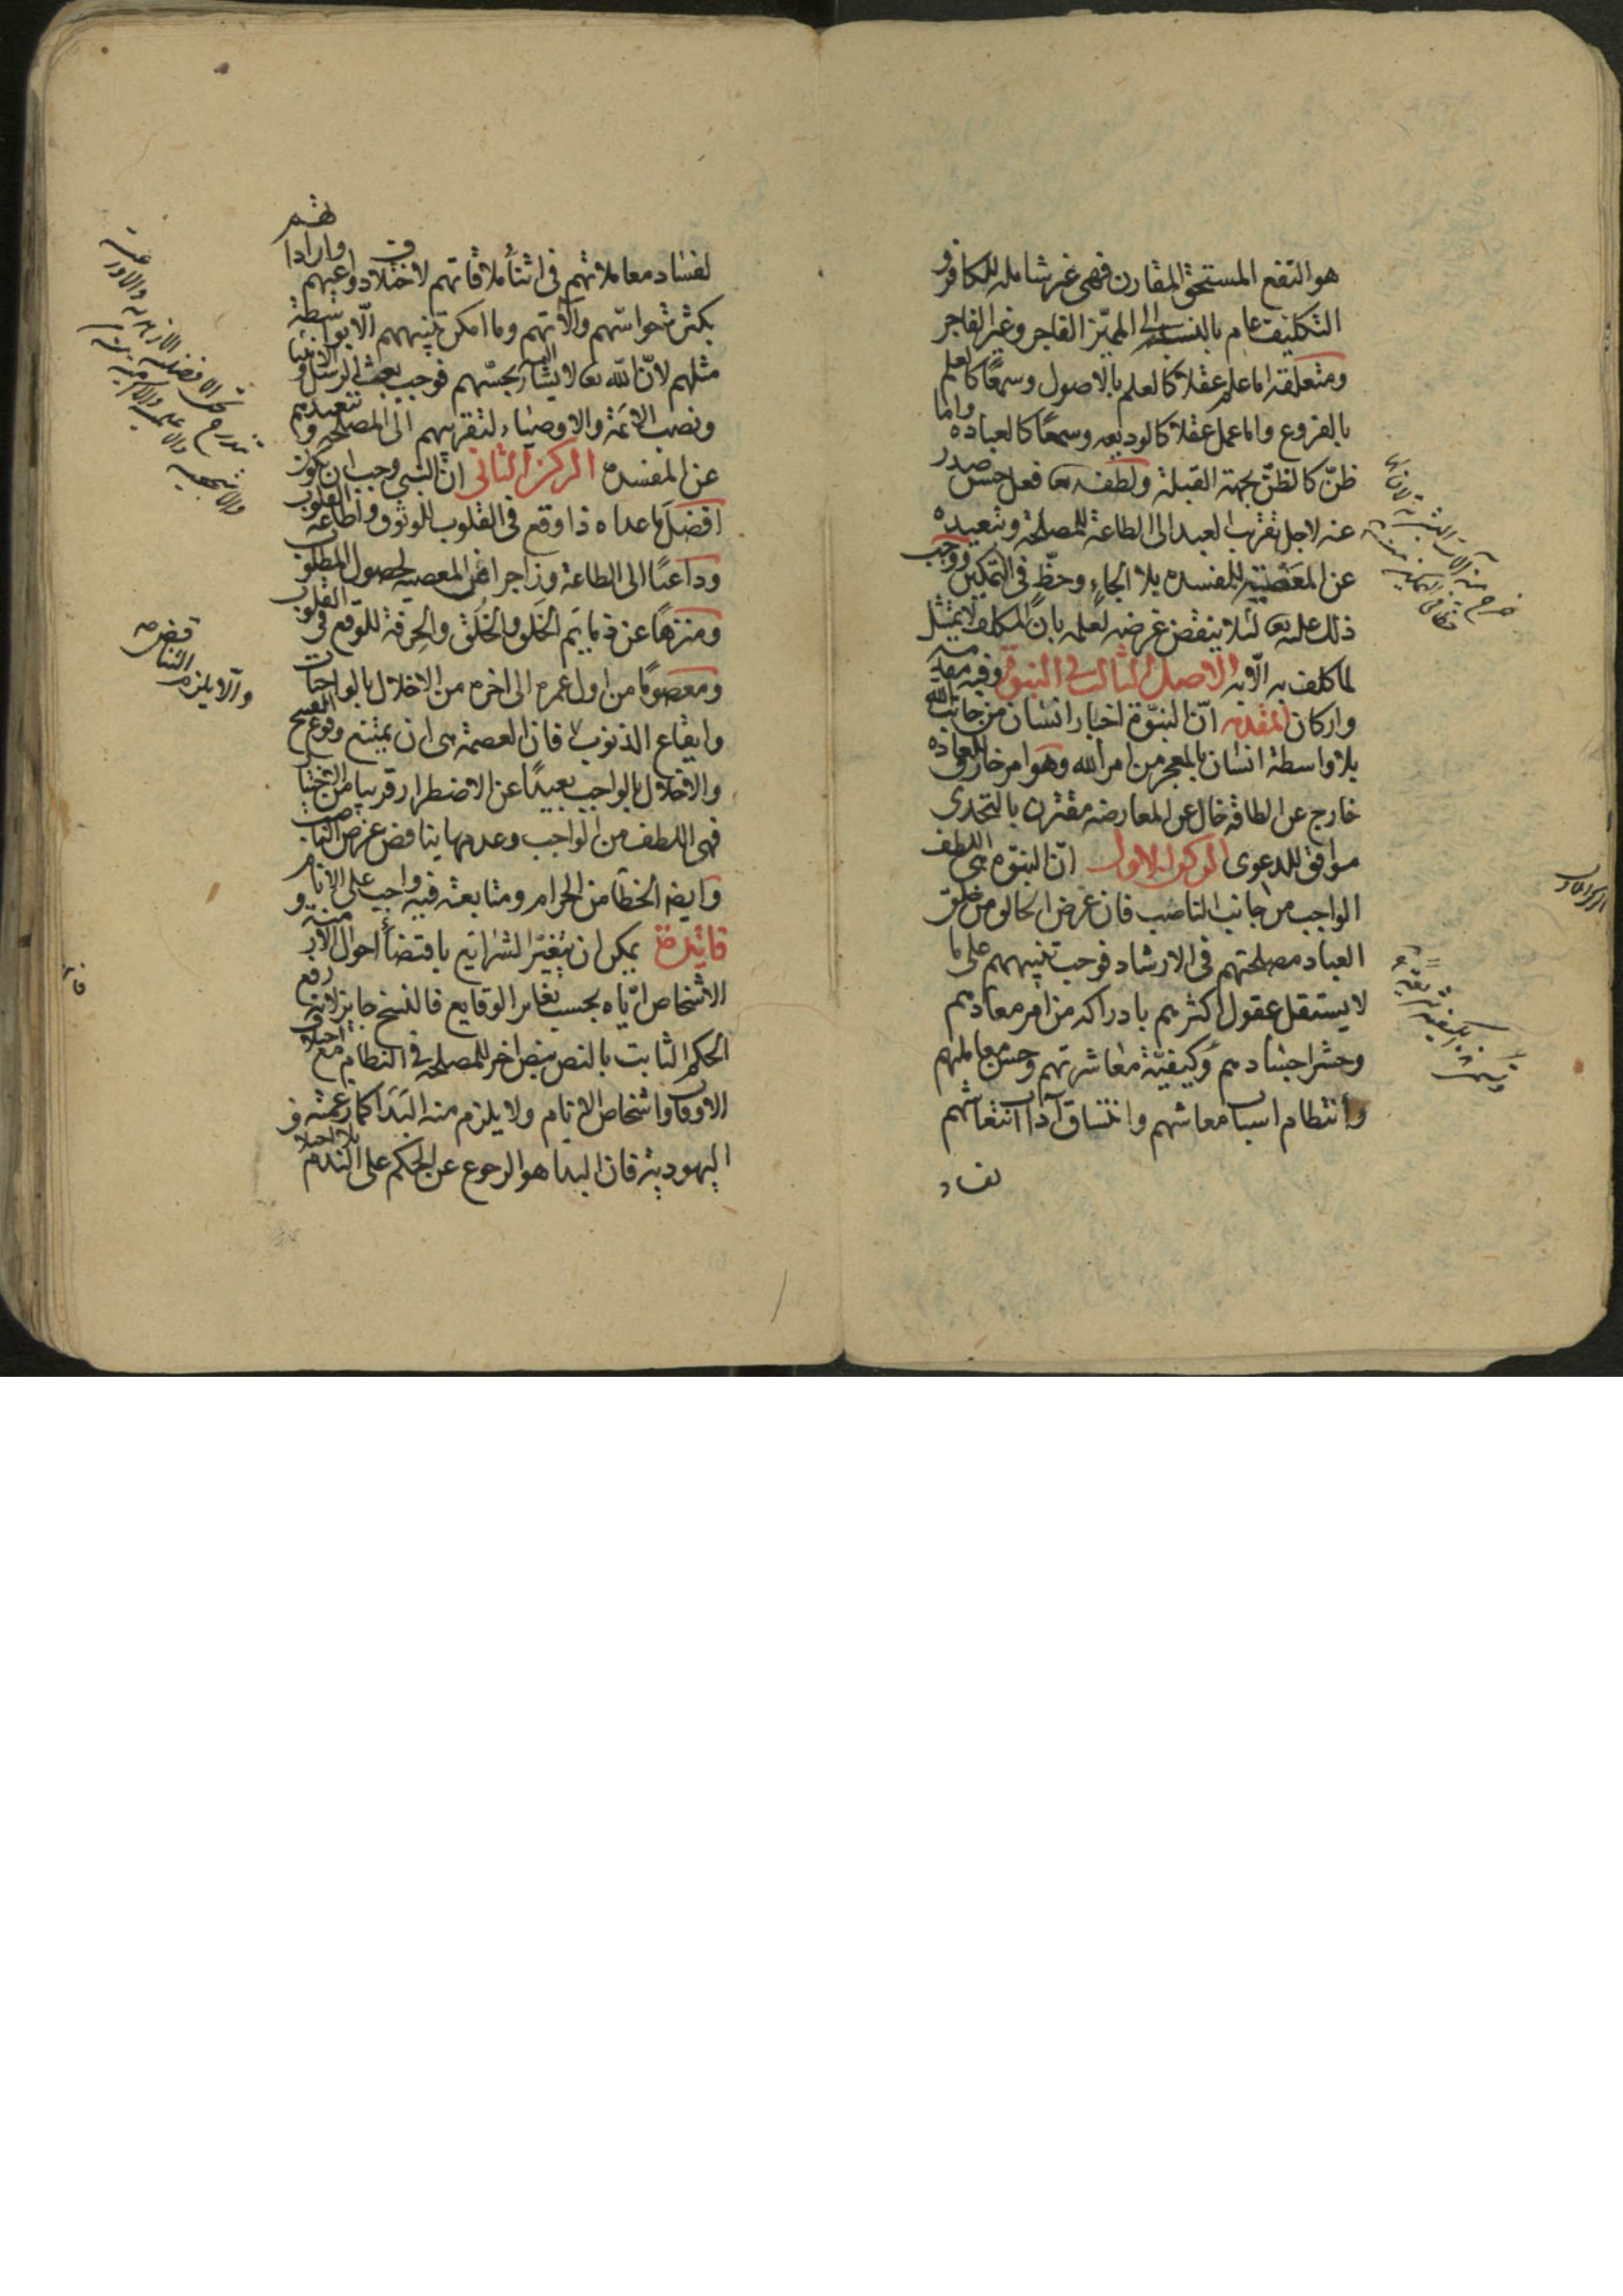 هو النفع المستحق المقارن فهى غير شامله للكافر و
التكليف عام بالنسبة الى المميّز الفاجر وغير الفاجر
ومتعلقه اما علم عقلا كالعلم بالاصول وسمعًا كالعلم
بالفروع واما عمل عقلا كالوديعه وسمعًا كالعباده واما
ظنّ كالظنّ بجهة القبلة ولطفه تعا فعل حسن صدر
عنه لاجل تقريب العبد الى الطاعة للمصلحة وتبعيده
عن المعصية للمفسده بلا الجاءٍ وحظٍّ فى التمكين ووجب
ذلك عليه تعا لئلا ينقض غرضه لعلمه بان المكلف لا يمتثل
لما كلف به الّا به الاصل الثالث فى النبوة وفيه مقدمه
واركان المقدمه انّ النبوّة اخبار انسان من جانب الله
بلا واسطة انسان بالمعجز من امر الله وهو امر خارق للعاده
خارج عن الطاقه خال عن المعارضه مقترن بالتحدى
موافق للدعوى الركن الاول انّ النبوه هى اللطف
الواجب من جانب الناصب فان غرض الخالق من خلق
العباد مصلحتهم فى الارشاد فوجب تنبيههم على ما
لا يستقل عقول اكثرهم بادراكه من امر معادهم
وحشر اجسادهم وكيفيّة معاشرتهم وحسن معاملتهم
وانتظام اسباب معاشهم واتساق آداب انتعاشهم
لفساد
لفساد معاملاتهم فى اثناء ملاقاتهم لاختلاف دواعيهم واراداتهم
بكثرة حواسّهم والآتهم وما امكن تنبيههم الّا بواسطة
مثلهم لانّ الله تعا لا يشار بحسّهم فوجب بعث الرسل والانبيا
ونصب الائمّة والاوصياء لتقريبهم الى المصلحه وتبعيدهم
عن المفسده الركن الثانى انّ النبى وجب ان يكون
افضل ما عداه ذا وقع فى القلوب للوثوق واطاعة القلوب
وداعيًا الى الطاعة وزاجرا عن المعصيه لحصول المطلوب
ومنزهًا عن ذمايم الخَلق والخُلق والحِرفة للوقع فى القلوب
ومعصومًا من اول عمره الى اخره من الاخلال بالواجبات
وايقاع الذنوب فان العصمة هى ان يمتنع وقوع القبيح
والاخلال بالواجب بعيدًا عن الاضطرار قريبا من الاختيار
فهى اللطف من الواجب وعدمها يناقض غرض الناصب
وايضا الخطأ من الحرام ومتابعته فيه واجب على الانام
فائدة يمكن ان يتغيّر الشرايع باقتضاء احوال الازمنة و
الاشخاص ايّاه بحسب تغاير الوقايع فالنسخ جايز لانه رفع
الحكم الثابت بالنص بنص اخر للمصلحه فى النظام مع اختلاف
الاوقات واشخاص الانام ولا يلزم منه البَدَا كما زعمته
اليهودية فان البدا هو الرجوع عن الحكم على الندم
والّا يلزم
التناقض منه